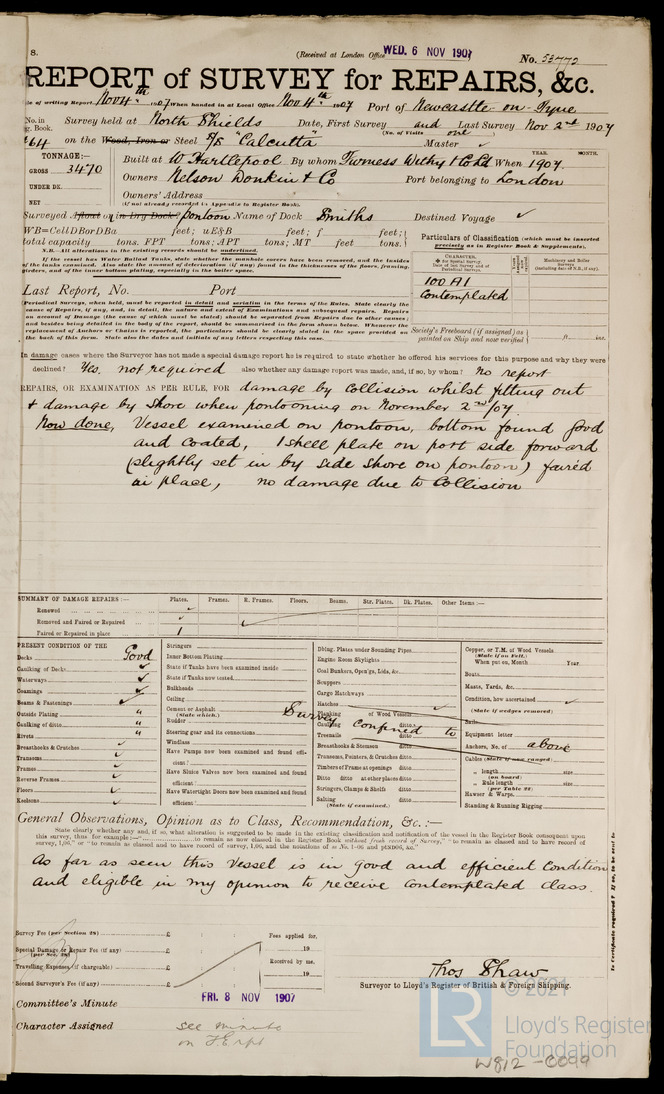 8.
(Received at London Office WED. 6 NOV 1907
No. 53772
REPORT of SURVEY for REPAIRS, &c.
Date of writing Report Nov 4th 1907 When handed in at Local Office Nov 4th 1907 Port of Newcastle-on-Tyne
No. in Survey held at North Shields Date, First Survey and Last Survey Nov 2nd 1907
Reg. Book. (No. of Visits one)
on the Wood, Iron or Steel S/S "Calcutta" Master ✓
TONNAGE:—
GROSS 3470
UNDER DK.
NET
YEAR. MONTH.
Built at W. Hartlepool By whom Furness Withy & Co Ld When 1907.
Owners Nelson Donkin & Co Port belonging to London
Owners' Address
(If not already recorded in Appendix to Register Book.)
Surveyed Afloat or in Dry Dock? Pontoon Name of Dock Smiths Destined Voyage ✓
WB=CellDBorDBa feet; uE&B feet; f feet;
total capacity tons. FPT tons; APT tons; MT feet tons.
N.B.—All alterations in the existing records should be underlined.
If the vessel has Water Ballast Tanks, state whether the manhole covers have been removed, and the insides of the tanks examined. Also state the amount of deterioration (if any) found in the thicknesses of the floors, framing, girders, and of the inner bottom plating, especially in the boiler space.
Particulars of Classification (which must be inserted precisely as in Register Book & Supplements).
CHARACTER.
Machinery and Boiler Surveys (including date of N.B., if any).
100 A1
Contemplated
Society's Freeboard (if assigned) as painted on Ship and now verified ft. ins.
Last Report, No. Port
(Periodical Surveys, when held, must be reported in detail and seriatim in the terms of the Rules. State clearly the
cause of Repairs, if any, and, in detail, the nature and extent of Examinations and subsequent repairs. Repairs
on account of Damage (the cause of which must be stated) should be separated from Repairs due to other causes;
and besides being detailed in the body of the report, should be summarised in the form shown below. Whenever the
replacement of Anchors or Chains is reported, the particulars should be clearly stated in the space provided on
the back of this form. State also the dates and initials of any letters respecting this case.
In damage cases where the Surveyor has not made a special damage report he is required to state whether he offered his services for this purpose and why they were
declined? Yes. not required also whether any damage report was made, and, if so, by whom? no report
REPAIRS, OR EXAMINATION AS PER RULE, FOR damage by collision whilst fitting out
& damage by Shore when pontooning on November 2nd/07.
Now done, Vessel examined on pontoon, bottom found good
and coated, 1 shell plate on port side forward
(slightly set in by side shore on pontoon) faired
in place, no damage due to Collision
SUMMARY OF DAMAGE REPAIRS:— Plates. Frames. R. Frames. Floors. Beams. Str. Plates. Dk. Plates. Other Items:—
Renewed ✓
Removed and Faired or Repaired ✓
Faired or Repaired in place 1
PRESENT CONDITION OF THE
Decks Good
Caulking of Decks ✓
Waterways ✓
Coamings ✓
Beams & Fastenings ✓
Outside Plating "
Caulking of ditto "
Rivets "
Breasthooks & Crutches ✓
Transoms ✓
Frames ✓
Reverse Frames ✓
Floors ✓
Keelsons ✓
Stringers
Inner Bottom Plating
State if Tanks have been examined inside
State if Tanks now tested
Bulkheads
Ceiling
Cement or Asphalt (State which.)
Rudder
Steering gear and its connections
Windlass
Have Pumps now been examined and found efficient?
Have Sluice Valves now been examined and found efficient?
Have Watertight Doors now been examined and found efficient?
Dblng. Plates under Sounding Pipes
Engine Room Skylights
Coal Bunkers, Open'gs, Lids, &c.
Scuppers
Cargo Hatchways
Hatches
Planking of Wood Vessels
Caulking ditto
Treenails ditto
Breasthooks & Stemson ditto
Transoms, Pointers, & Crutches ditto
Timbers of Frame at openings ditto
Ditto ditto at other places ditto
Stringers, Clamps & Shelfs ditto
Salting ditto
(State if examined.)
Copper, or Y.M. of Wood Vessels
(State if on Felt.)
When put on, Month Year
Boats
Masts, Yards, &c.
Condition, how ascertained ✓
(State if wedges removed)
Sails
Equipment letter
Anchors, No. of
Cables (State if now ranged)
" length size
(on board)
" Rule length size
(per Table 22)
Hawser & Warps
Standing & Running Rigging
Survey confined to above
General Observations, Opinion as to Class, Recommendation, &c.:—
State clearly whether any and, if so, what alteration is suggested to be made in the existing classification and notification of the vessel in the Register Book consequent upon
this survey, thus for example:— to remain as now classed in the Register Book without fresh record of Survey," or "to remain as classed and to have record of
survey, 1,06," or "to remain as classed and to have record of survey, 1,06, and the notations of ss No. 1-06 and ptND06, &c."
As far as seen this Vessel is in good and efficient Condition
and eligible in my opinion to receive Contemplated Class.
Survey Fee (per Section 28) £
Special Damage or Repair Fee (if any) £
(per Sec. 28)
Travelling Expenses (if chargeable) £
Second Surveyor's Fee (if any) £
Fees applied for,
19
Received by me,
19
Thos Shaw
Surveyor to Lloyd's Register of British & Foreign Shipping.
Committee's Minute FRI. 8 NOV 1907
Character Assigned see minute
on F.E. rpt
Is Certificate required? If so, to be sent to
© 2021
LR
Lloyd's Register
Foundation
W812-0099